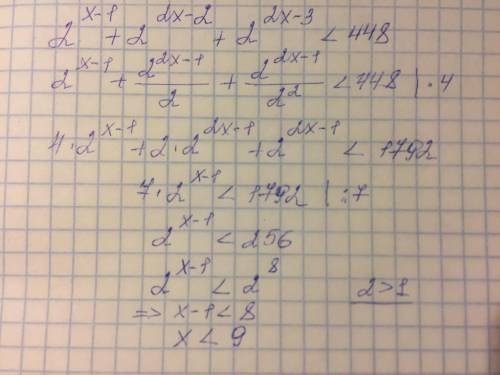 2^{x-1} + 2^{2x-2} + 2^{2x-3} < 448
2^{x-1} + \frac{2^{2x-1}}{2} + \frac{2^{2x-1}}{2^2} < 448 | · 4
4 · 2^{x-1} + 2 · 2^{2x-1} + 2^{2x-1} < 1792
7 · 2^{x-1} < 1792 | : 7
2^{x-1} < 256
2^{x-1} < 2^8 2 > 1
=> x-1 < 8
x < 9